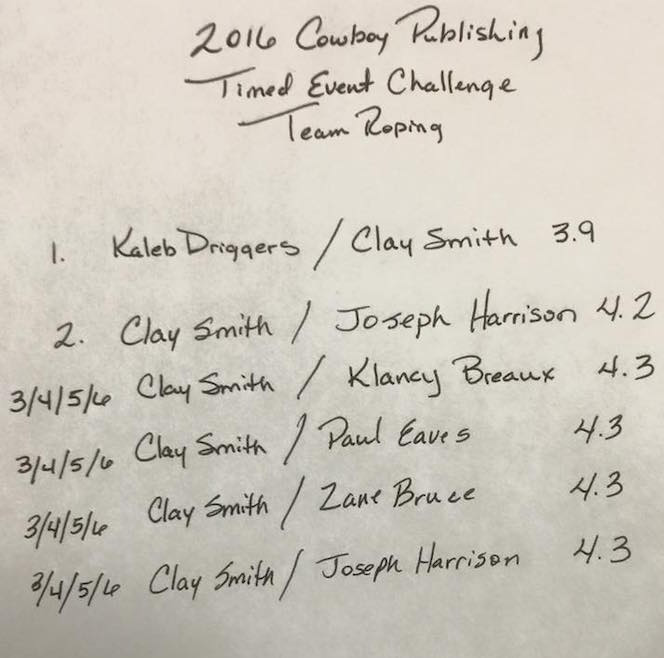 2016 Cowboy Publishing
Timed Event Challenge
Team Roping
1. Kaleb Driggers / Clay Smith 3.9
2. Clay Smith / Joseph Harrison 4.2
3/4/5/6 Clay Smith / Klancy Breaux 4.3
3/4/5/6 Clay Smith / Paul Eaves 4.3
3/4/5/6 Clay Smith / Zane Bruce 4.3
3/4/5/6 Clay Smith / Joseph Harrison 4.3